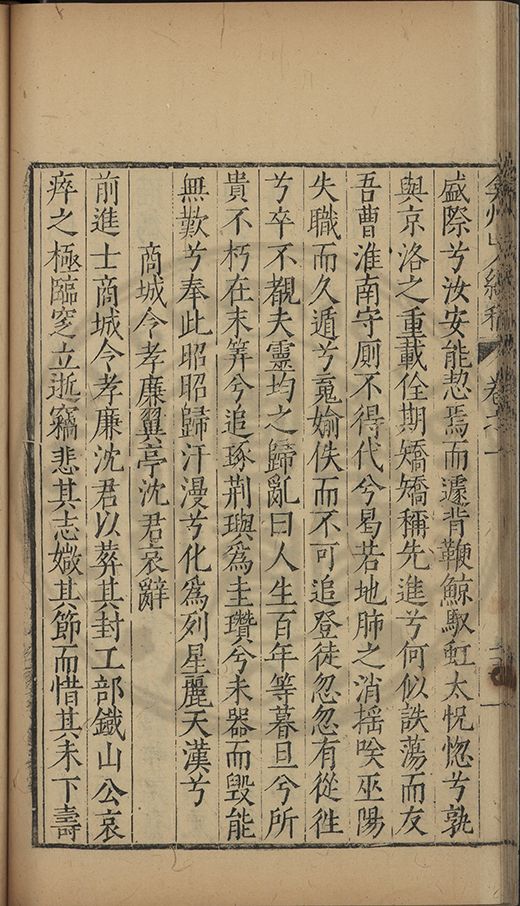 弇州山人續稿 卷之十一
盛際兮汝安能恝焉而遽背鞭鯨馭虹太怳惚兮孰
與京洛之重載佺期矯矯稱先進兮何似詄蕩而友
吾曹淮南守厠不得代兮曷若地肺之消揺唉巫陽
失職而久遁兮䰟媮佚而不可追登徒忽忽有從徃
兮卒不覩夫靈均之歸亂曰人生百年等暮旦兮所
貴不朽在末筭兮追琢荆璵為圭瓚兮未器而毁能
無歎兮奉此昭昭歸汗漫兮化為列星麗天漢兮
商城令孝廉翼亭沈君哀辭
前進士商城令孝廉沈君以葬其封工部鐵山公哀
瘁之極臨窆立逝竊悲其志媺其節而惜其未下壽